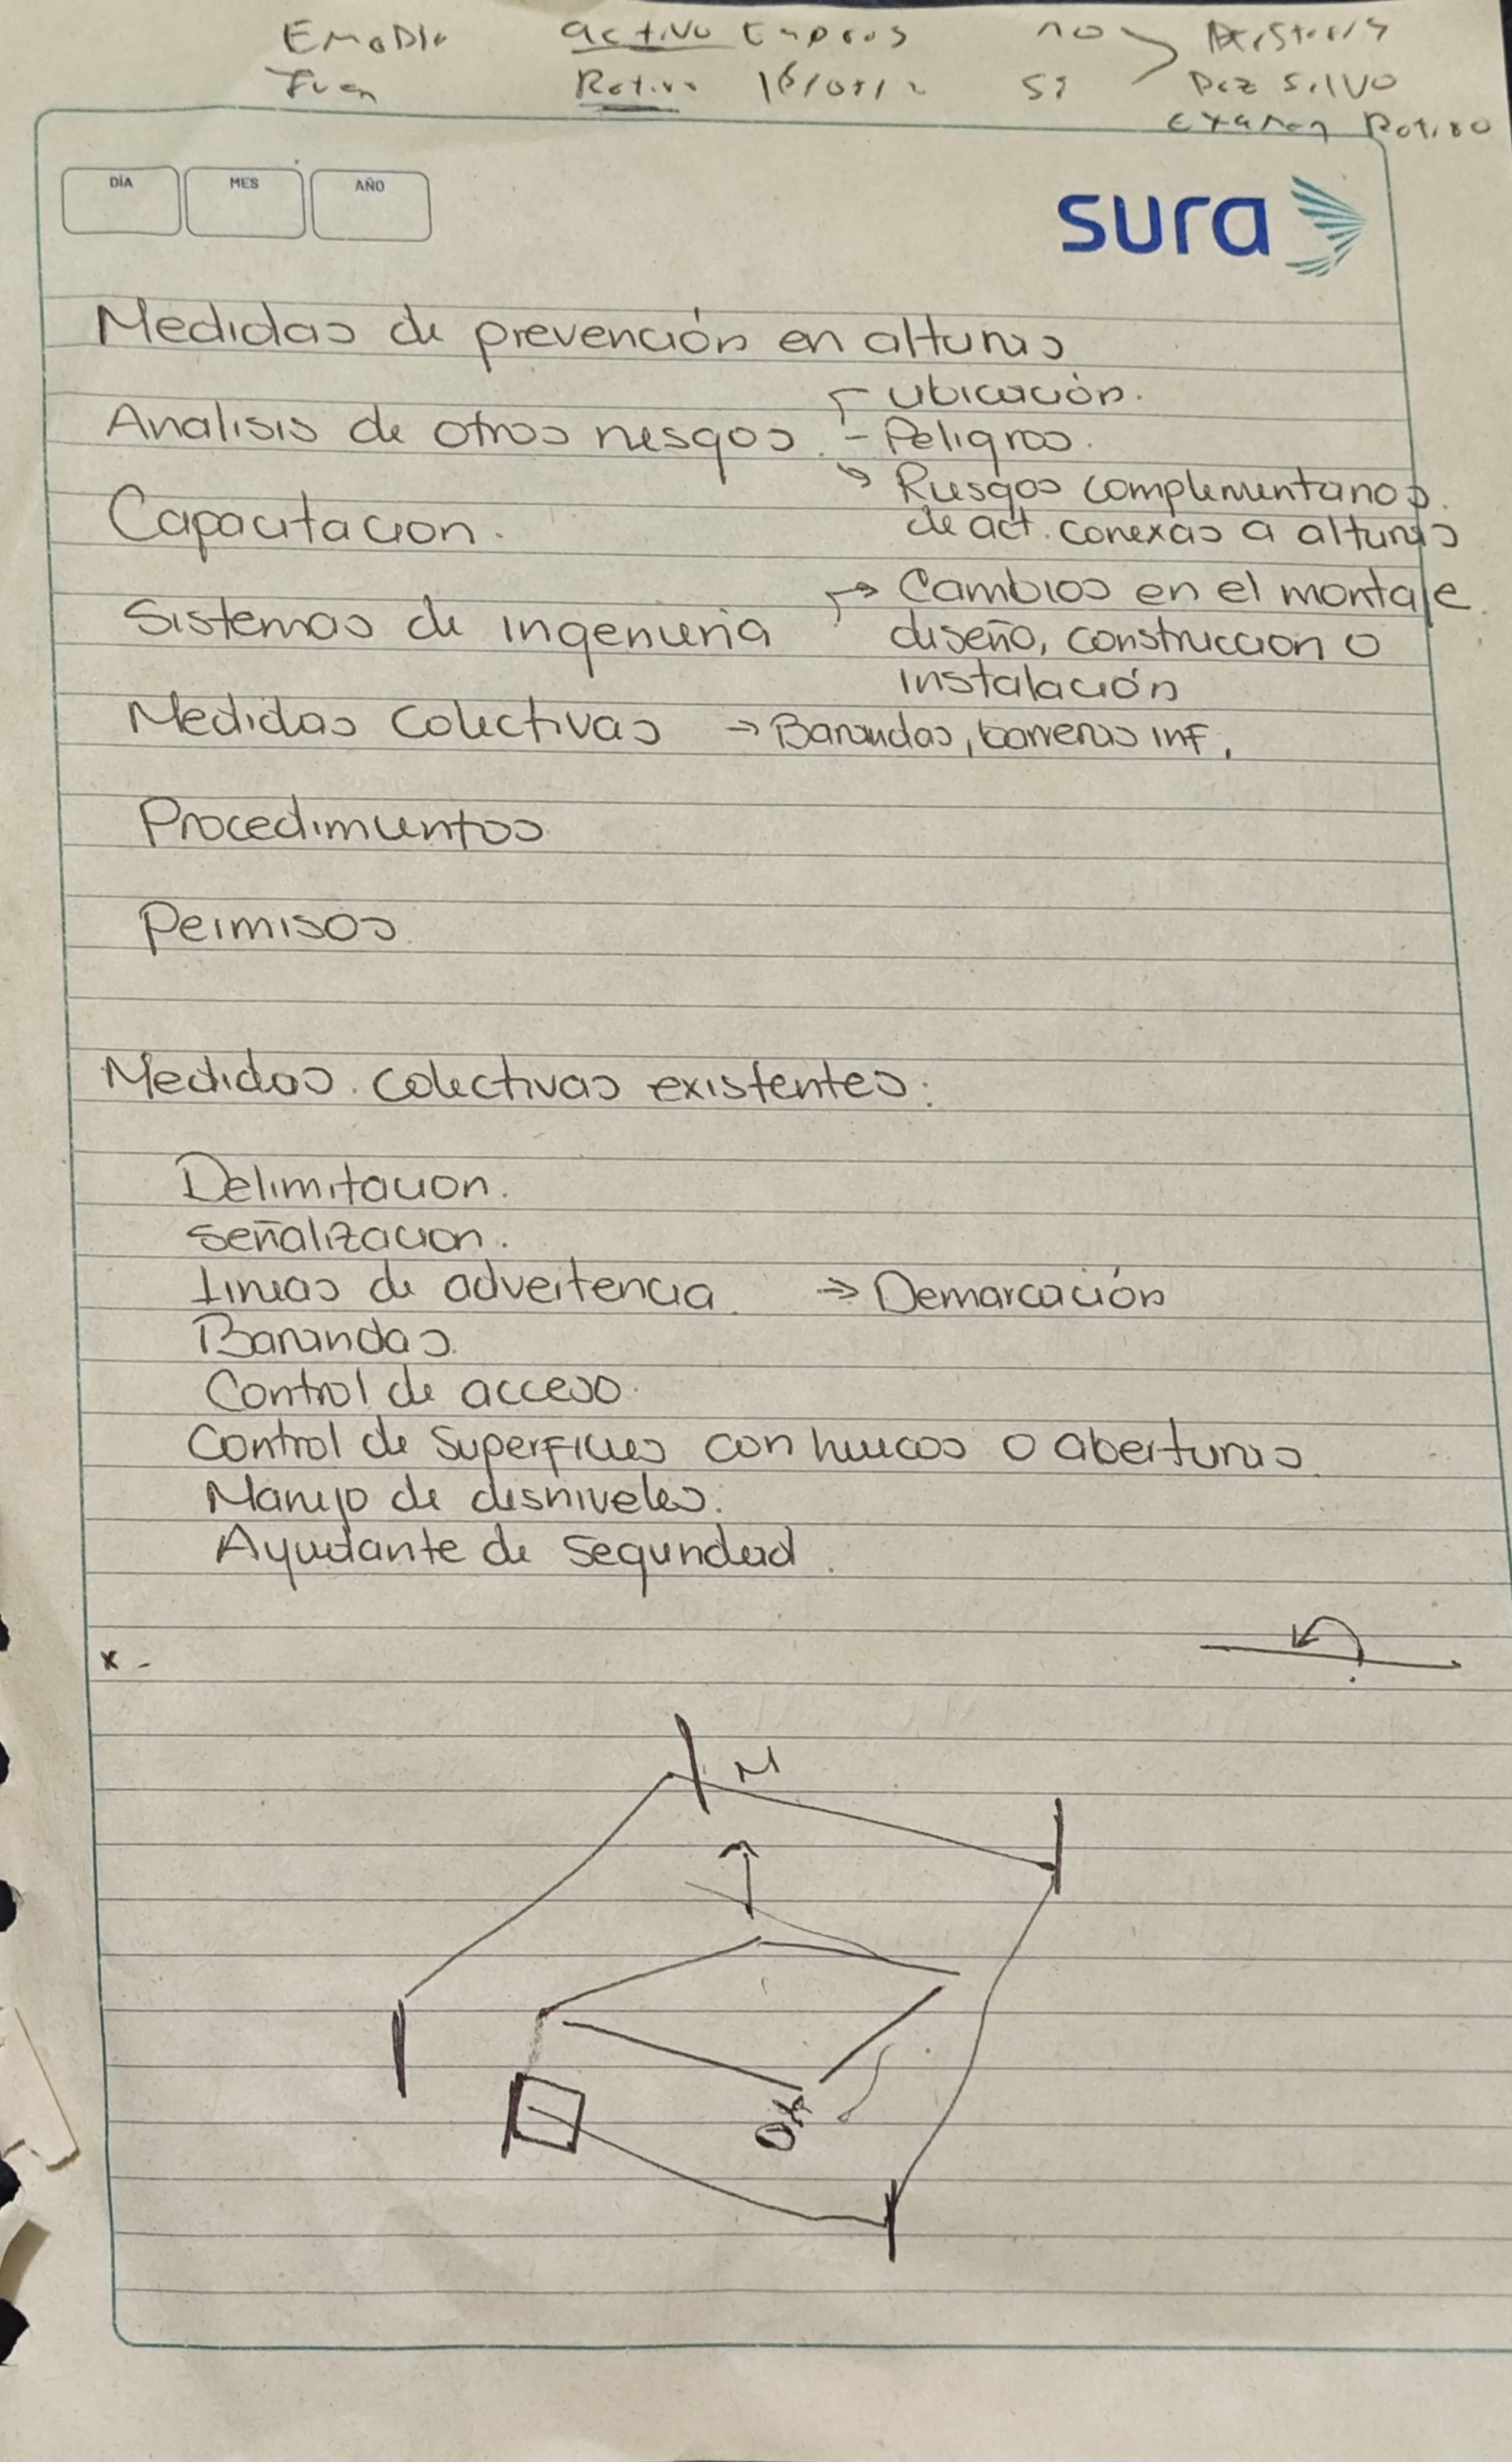 activo
no
Juan
Retiro
si
Paz Salvo
Examen Retiro
DÍA MES AÑO
sura
Medidas de prevención en alturas
Analisis de otros riesgos.
- Ubicación.
- Peligros.
Riesgos complementarios
de act. conexas a alturas
Capacitacion.
Sistemas de ingenieria
→ Cambios en el montaje
diseño, construccion o
instalación
Medidas colectivas → Barandas, barreras inf,
Procedimientos
Permisos
Medidas colectivas existentes:
Delimitacion.
Señalizacion.
Lineas de advertencia. → Demarcación
Barandas.
Control de acceso.
Control de superficies con huecos o aberturas.
Manejo de desniveles.
Ayudante de seguridad.
x -
M